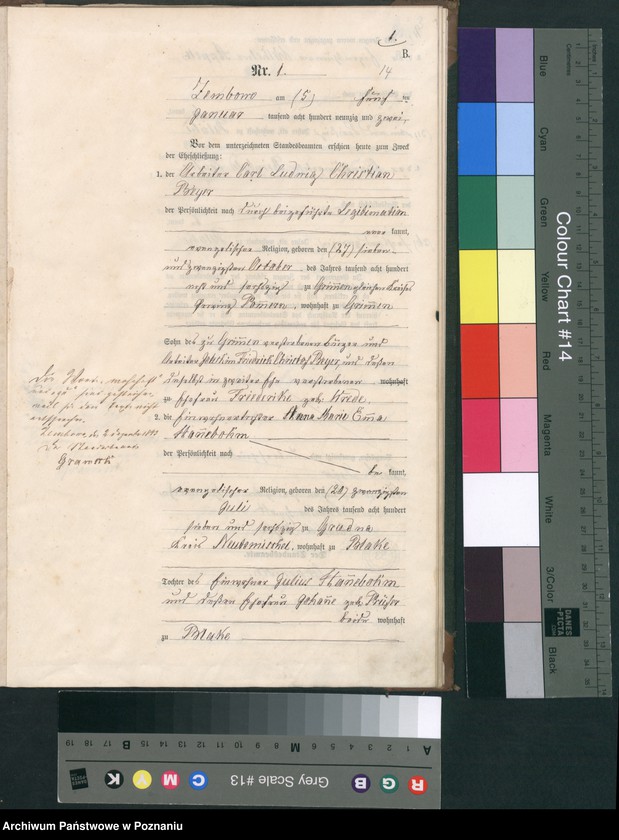 1.
B.
Nr. 1.
14
Zembowo am (5) fünf ten
Januar tausend acht hundert neunzig und zwei.
Vor dem unterzeichneten Standesbeamten erschien heute zum Zweck
der Eheschließung:
1. der Arbeiter Carl Ludwig Christian
Beyer
der Persönlichkeit nach durch beigeführte Legitimation
kannt,
evangelischer Religion, geboren den (27) sieben
und zwanzigsten October des Jahres tausend acht hundert
acht und sechszig zu Grimmen gleichen Kreises
Provinz Pommern, wohnhaft zu Grimmen
Sohn des zu Grimmen verstorbenen Bürger und
Arbeiter Joachim Friedrich Christof Beyer, und dessen
daselbst in zweiter Ehe verstorbenen wohnhaft
zu Ehefrau Friederike geb. Krede.
2. die Einwohnertochter Anna Marie Emma
Hanebohm
der Persönlichkeit nach
be kannt,
evangelischer Religion, geboren den (20) zwanzigsten
Juli des Jahres tausend acht hundert
sieben und sechszig zu Grudna
Kreis Neutomischel, wohnhaft zu Blake
Tochter des Einwohner Julius Hanebohm
und dessen Ehefrau Johanne geb.
beide wohnhaft
zu Blake
Zembowo, d.
Der Standesbeamte
Colour Chart #14
Blue
Cyan
Green
Yellow
Red
Magenta
White
3/Color
Black
Centimetres
Inches
DANES
PICTA
Grey Scale #13
R G B C M Y K
A 1 2 3 4 5 6 M 8 9 10 11 12 13 14 15 B 17 18 19
Archiwum Państwowe w Poznaniu